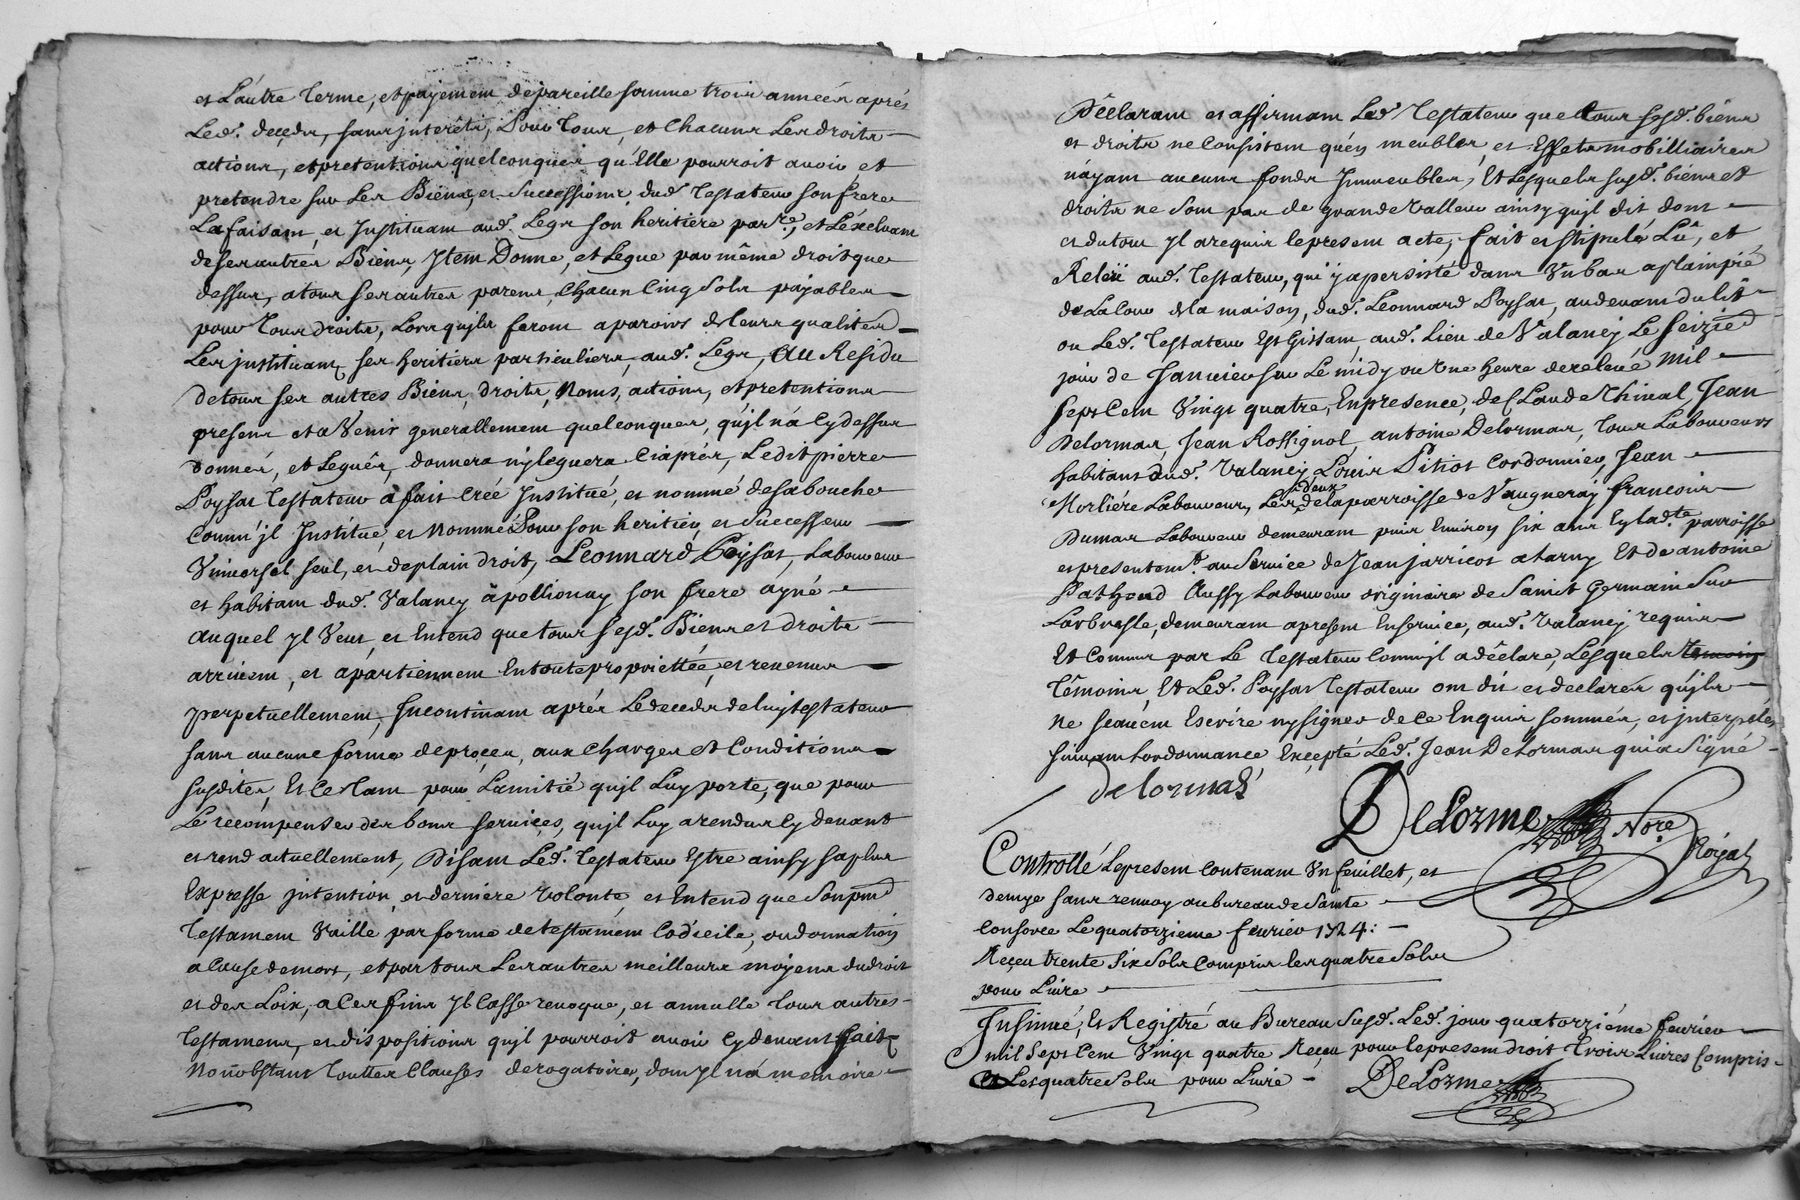 et L'autre terme, et payement de pareille somme trois années aprés
Led. deçeds, sans jnterêts, Pour tous, et chacuns Les droits
actions, et pretentions quelconques qu'Elle pourroit avoir et
pretendre sur Les Biens, et Successions dud. Testateur son frere
La faisant, et Jnstituant aud. Legs son heritiere par.re, et L'éxcluant
de ses autres Biens, Jtem Donne, et Legue par même droit que
dessus, a tous ses autres parens, chacun Cinq Sols payables
pour tous droits, Lors qu'jls feront aparoirs de leurs qualités
Les jnstituant ses heritiers particuliers, aud. Legs, Au Residu
de tous ses autres Biens, droits, Noms, actions, et pretentions
presens et a Venir generallement quelconques, qu'jl n'a Cy dessus
donnés, et Legués, donnera ny leguera Ciaprés, Ledit pierre
Poysat Testateur a fait créé Jnstitué, et nommé de sa bouche
Comm'jl Jnstitue, et Nomme Pour son heritier, et Successeur
Vniversel seul, et de plain droit, Leonnard Poysat, Laboureur
et habitant dud. Valancy à pollionay son frere ayné
auquel jl Veut, et Entend que tous sesd. Biens et droits
arrivent, et apartiennent En toute proprietée, et revenus
perpetuellement, Jncontinant aprés Le deceds de luy testateur
sans aucune forme de proçes, aux charges et Conditions
susdites, Et Ce tant pour L'amitié qu'jl Luy porte, que pour
Le recompenser des bons services, qu'jl Luy a rendus Cy devant
et rend actuellement, Disant Led. Testateur Estre ainsy sa plus
Expresse jntention, et derniere volonté, et Entend que Son pnt
Testament Vaille par forme de testament Codicile, ou donnation
a Cause de mort, et par tous Les autres meilleurs moyens du droit
et des Loix, a Ces fins Jl Casse revoque, et annulle tous autres
Testamens, et dispositions qu'jl pourroit avoir Cy devant fait
Nonobstant touttes Clauses derogatoires, dont Jl n'a memoire
Déclarant et affirmant Led. Testateur que tous sesd. biens
et droits ne Consistent qu'en meubles, et Effets mobilliaires
n'ayant aucuns fonds Jmmeubles, Et Lesquels susd. biens et
droits ne sont pas de grande valleur ainsy qu'jl dit dont
et du tout Jl a requis le present acte, fait et stipulé Lû, et
Releü aud. Testateur, qui y a persisté dans Vn bas a plainpié
de La Cour de la maison, dud. Leonnard Poysat, au devant du lit
ou Led. Testateur Est Gissant, aud. Lieu de Valancy Le seizie
jour de Janvier sur Le midy ou Vne heure de relevé mil
sept Cent Vingt quatre, En presence, de Claude Thinal, Jean
Delormas, Jean Rossignol, antoine Delormas, tous Laboureurs
habitans dud. Valancy, Loüis Pitiot Cordonnier, Jean
Morliére Laboureur, Les deux de la parroisse de Vaugneray francois
Dumas Laboureur demeurant puis Environ six ans En lad.te parroisse
et presentem.t au Service de Jean jarricot a tarny Et de antoine
Pathoud Aussy Laboureur originaire de Saint Germain Sur
Larbresle, demeurant a present En service, aud. Valancy, requis
Et Connus par Le Testateur Comm'jl a déclare, Lesquels temoins
Témoins, Et Led. Poysat Testateur ont dit et declarés qu'jls
Ne scavent Escrire ny signer de ce Enquis sommés, et jnterpelés
suivant Lordonnance Excepté Led. Jean Delormas qui a signé
Delormas
DeLorme Nore. Royal
Controllé Le present Contenant Vn feuillet, et
demye sans renvoy au bureau de Sainte
Consorce Le quatorzieme fevrier 1724:
Reçeu trente Six Sols Compris les quatre Sols
pour Livre
Jnsinué, Et Registré au Bureau Susd. Led. jour quatorziéme fevrier
mil Sept Cent Vingt quatre Reçeu pour le present droit trois Livres Compris
Les quatre Sols pour Livre DeLorme